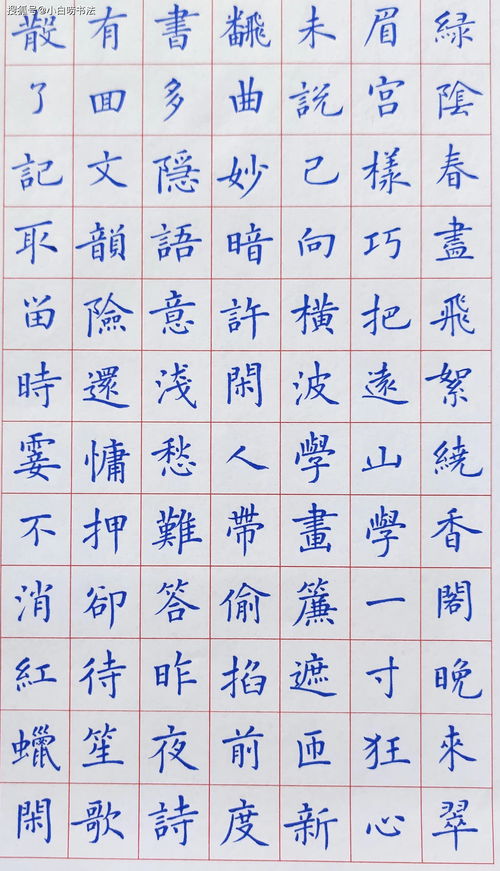 搜狐号@小白唠书法
綠陰春盡飛絮繞香閣晚來翠
眉宮樣巧把遠山學一寸狂心
未說已向橫波學畫簾遮匝新
飜曲妙暗許閑人帶偷掐前度
書多隱語意淺愁難答昨夜詩
有囬文韻險還慵押卻待笙歌
散了記取畄時霎不消紅蠟閑